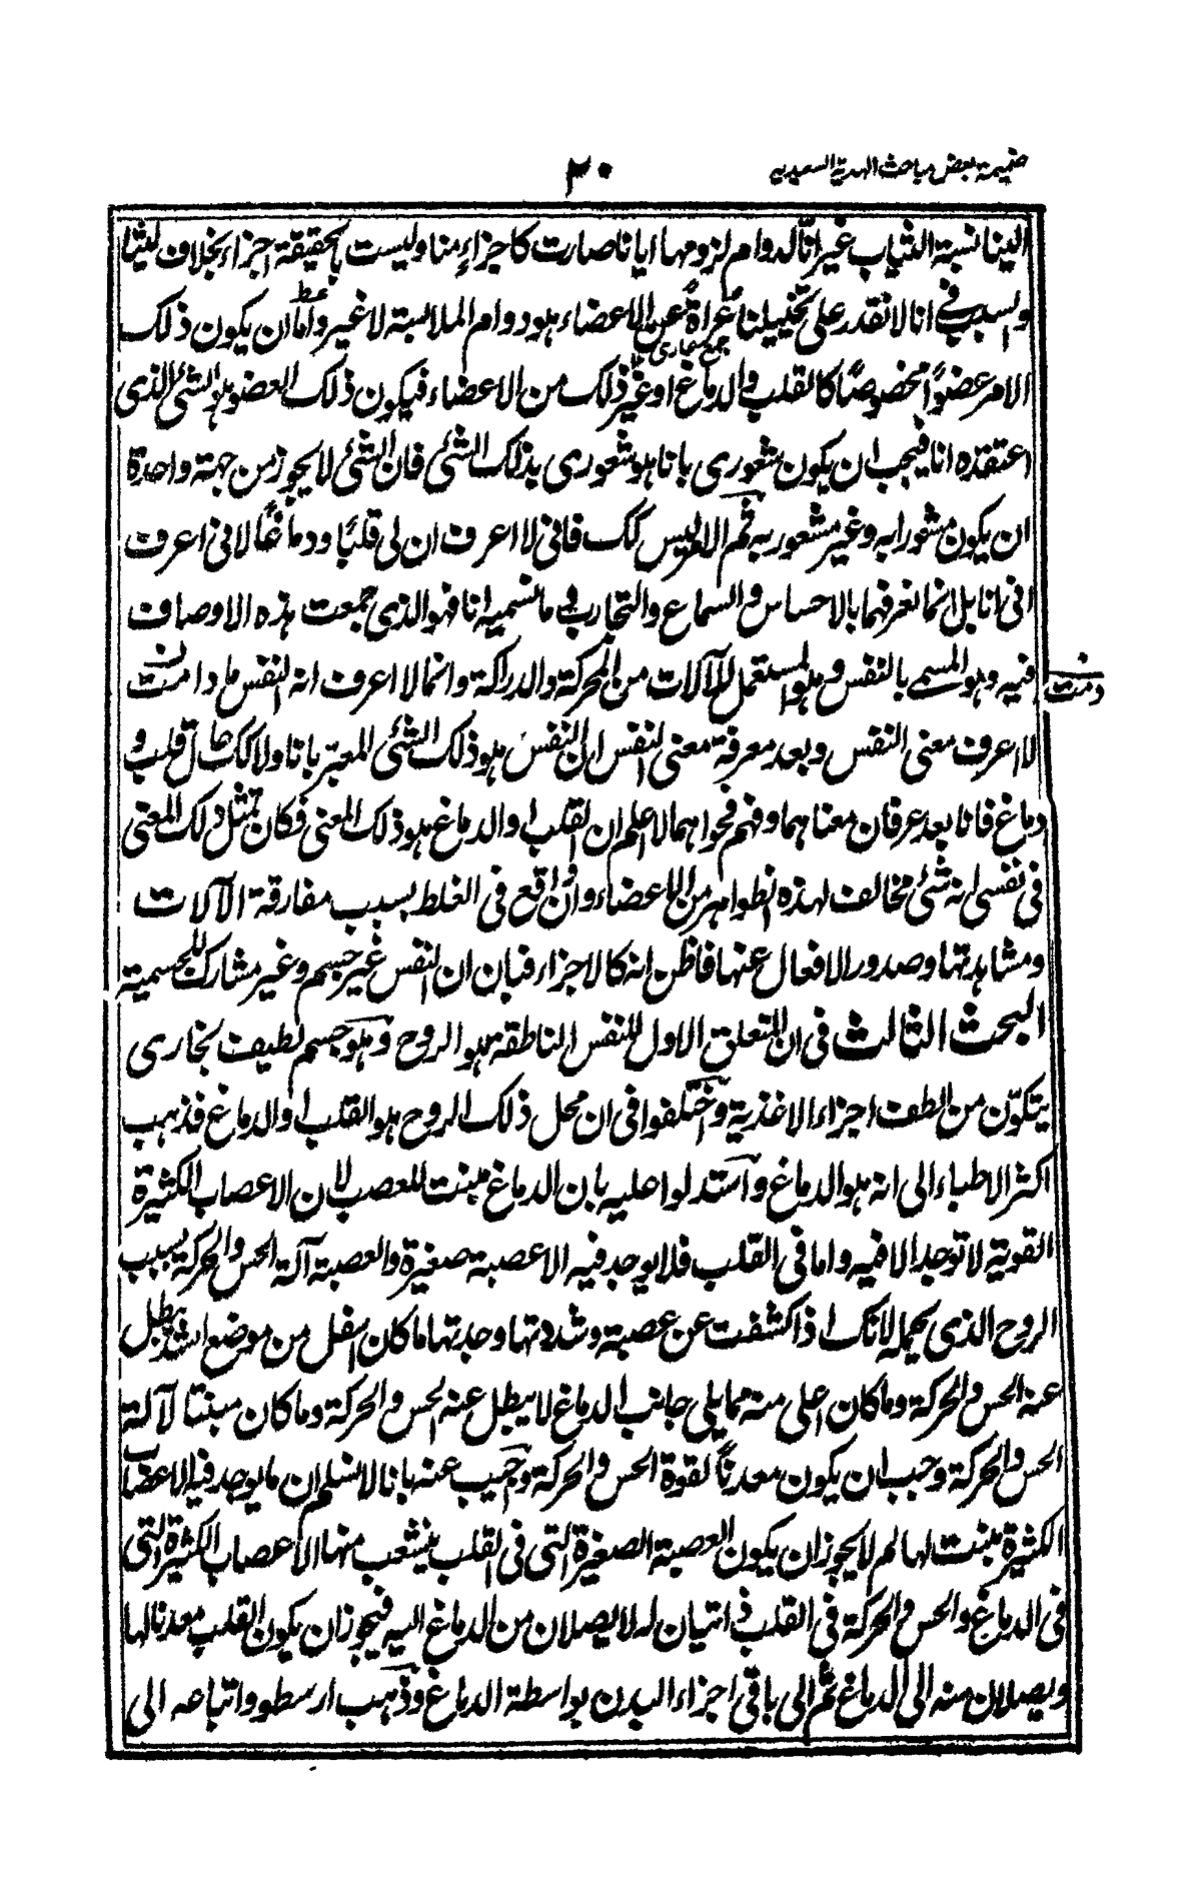 ضميمة بعض مباحث الهدية السعيدية
٣٠
الينا نسبة الثياب غير انا لدوام لزومها ايانا صارت كاجزاءٍ منا وليست بالحقيقة اجزاء بخلاف ثيابنا
والسبب في انا لا نقدر على تخييلنا عراةً عن الاعضاء هو دوام الملابسة لا غير واما ان يكون ذلك
الامر عضوًا مخصوصًا كالقلب والدماغ او غير ذلك من الاعضاء فيكون ذلك العضو هو الشئ الذى
اعتقده انا فيجب ان يكون شعورى بانا هو شعورى بذلك الشئ فان الشئ لا يجوز من جهة واحدة
ان يكون مشعورا به وغير مشعور به ثم الامر ليس كك فانى لا اعرف ان لى قلبًا ودماغًا لانى اعرف
انى انا بل انما نعرفهما بالاحساس والسماع والتجارب فما نسميه انا فهو الذى جمعت هذه الاوصاف
فيه وهو المسمى بالنفس وهو المستعمل للآلات من المحركة والدراكة وانما لا اعرف انه النفس ما دامت
دمت
لا اعرف معنى النفس وبعد معرفة معنى النفس ان النفس هو ذلك الشئ المعبر بانا ولا كك حال قلب و
دماغ فانا بعد عرفان معناهما وفهم فحواهما لا اعلم ان القلب او الدماغ هو ذلك المعنى فكان تمثل ذلك المعنى
فى نفسى انه شئ مخالف لهذه الظواهر من الاعضاء وان اقع فى الغلط بسبب مفارقة الآلات
ومشاهدتها وصدور الافعال عنها فاظن انه كالاجزاء فبان ان النفس غير جسم وغير مشارك للجسمية
البحث الثالث فى ان المتعلق الاول للنفس الناطقة هو الروح وهو جسم لطيف بخارى
يتكوّن من الطف اجزاء الاغذية واختلفوا فى ان محل ذلك الروح هو القلب او الدماغ فذهب
اكثر الاطباء الى انه هو الدماغ واستدلوا عليه بان الدماغ منبت للعصب لان الاعصاب الكثيرة
القوية لا توجد الا فيه واما فى القلب فلا يوجد فيه الا عصبة صغيرة والعصبة آلة الحس والحركة بسبب
الروح الذى يحمله لانك اذا كشفت عن عصبة وشددتها وجدتها ما كان اسفل من موضع الشد يبطل
عنه الحس والحركة وما كان اعلى منه مما يلى جانب الدماغ لا يبطل عنه الحس والحركة وما كان منبتا لآلة
الحس والحركة وجب ان يكون معدنًا لقوة الحس والحركة واجيب عنه بانا لا نسلم ان ما يوجد فيه الاعصاب
الكثيرة منبت لها لم لا يجوز ان يكون العصبة الصغيرة التى فى القلب ينشعب منها الاعصاب الكثيرة التى
فى الدماغ والحس والحركة فى القلب ذاتيان له لا يصلان من الدماغ اليه فيجوز ان يكون القلب معدنا لها
ويصلان منه الى الدماغ ثم الى باقى اجزاء البدن بواسطة الدماغ وذهب ارسطو واتباعه الى